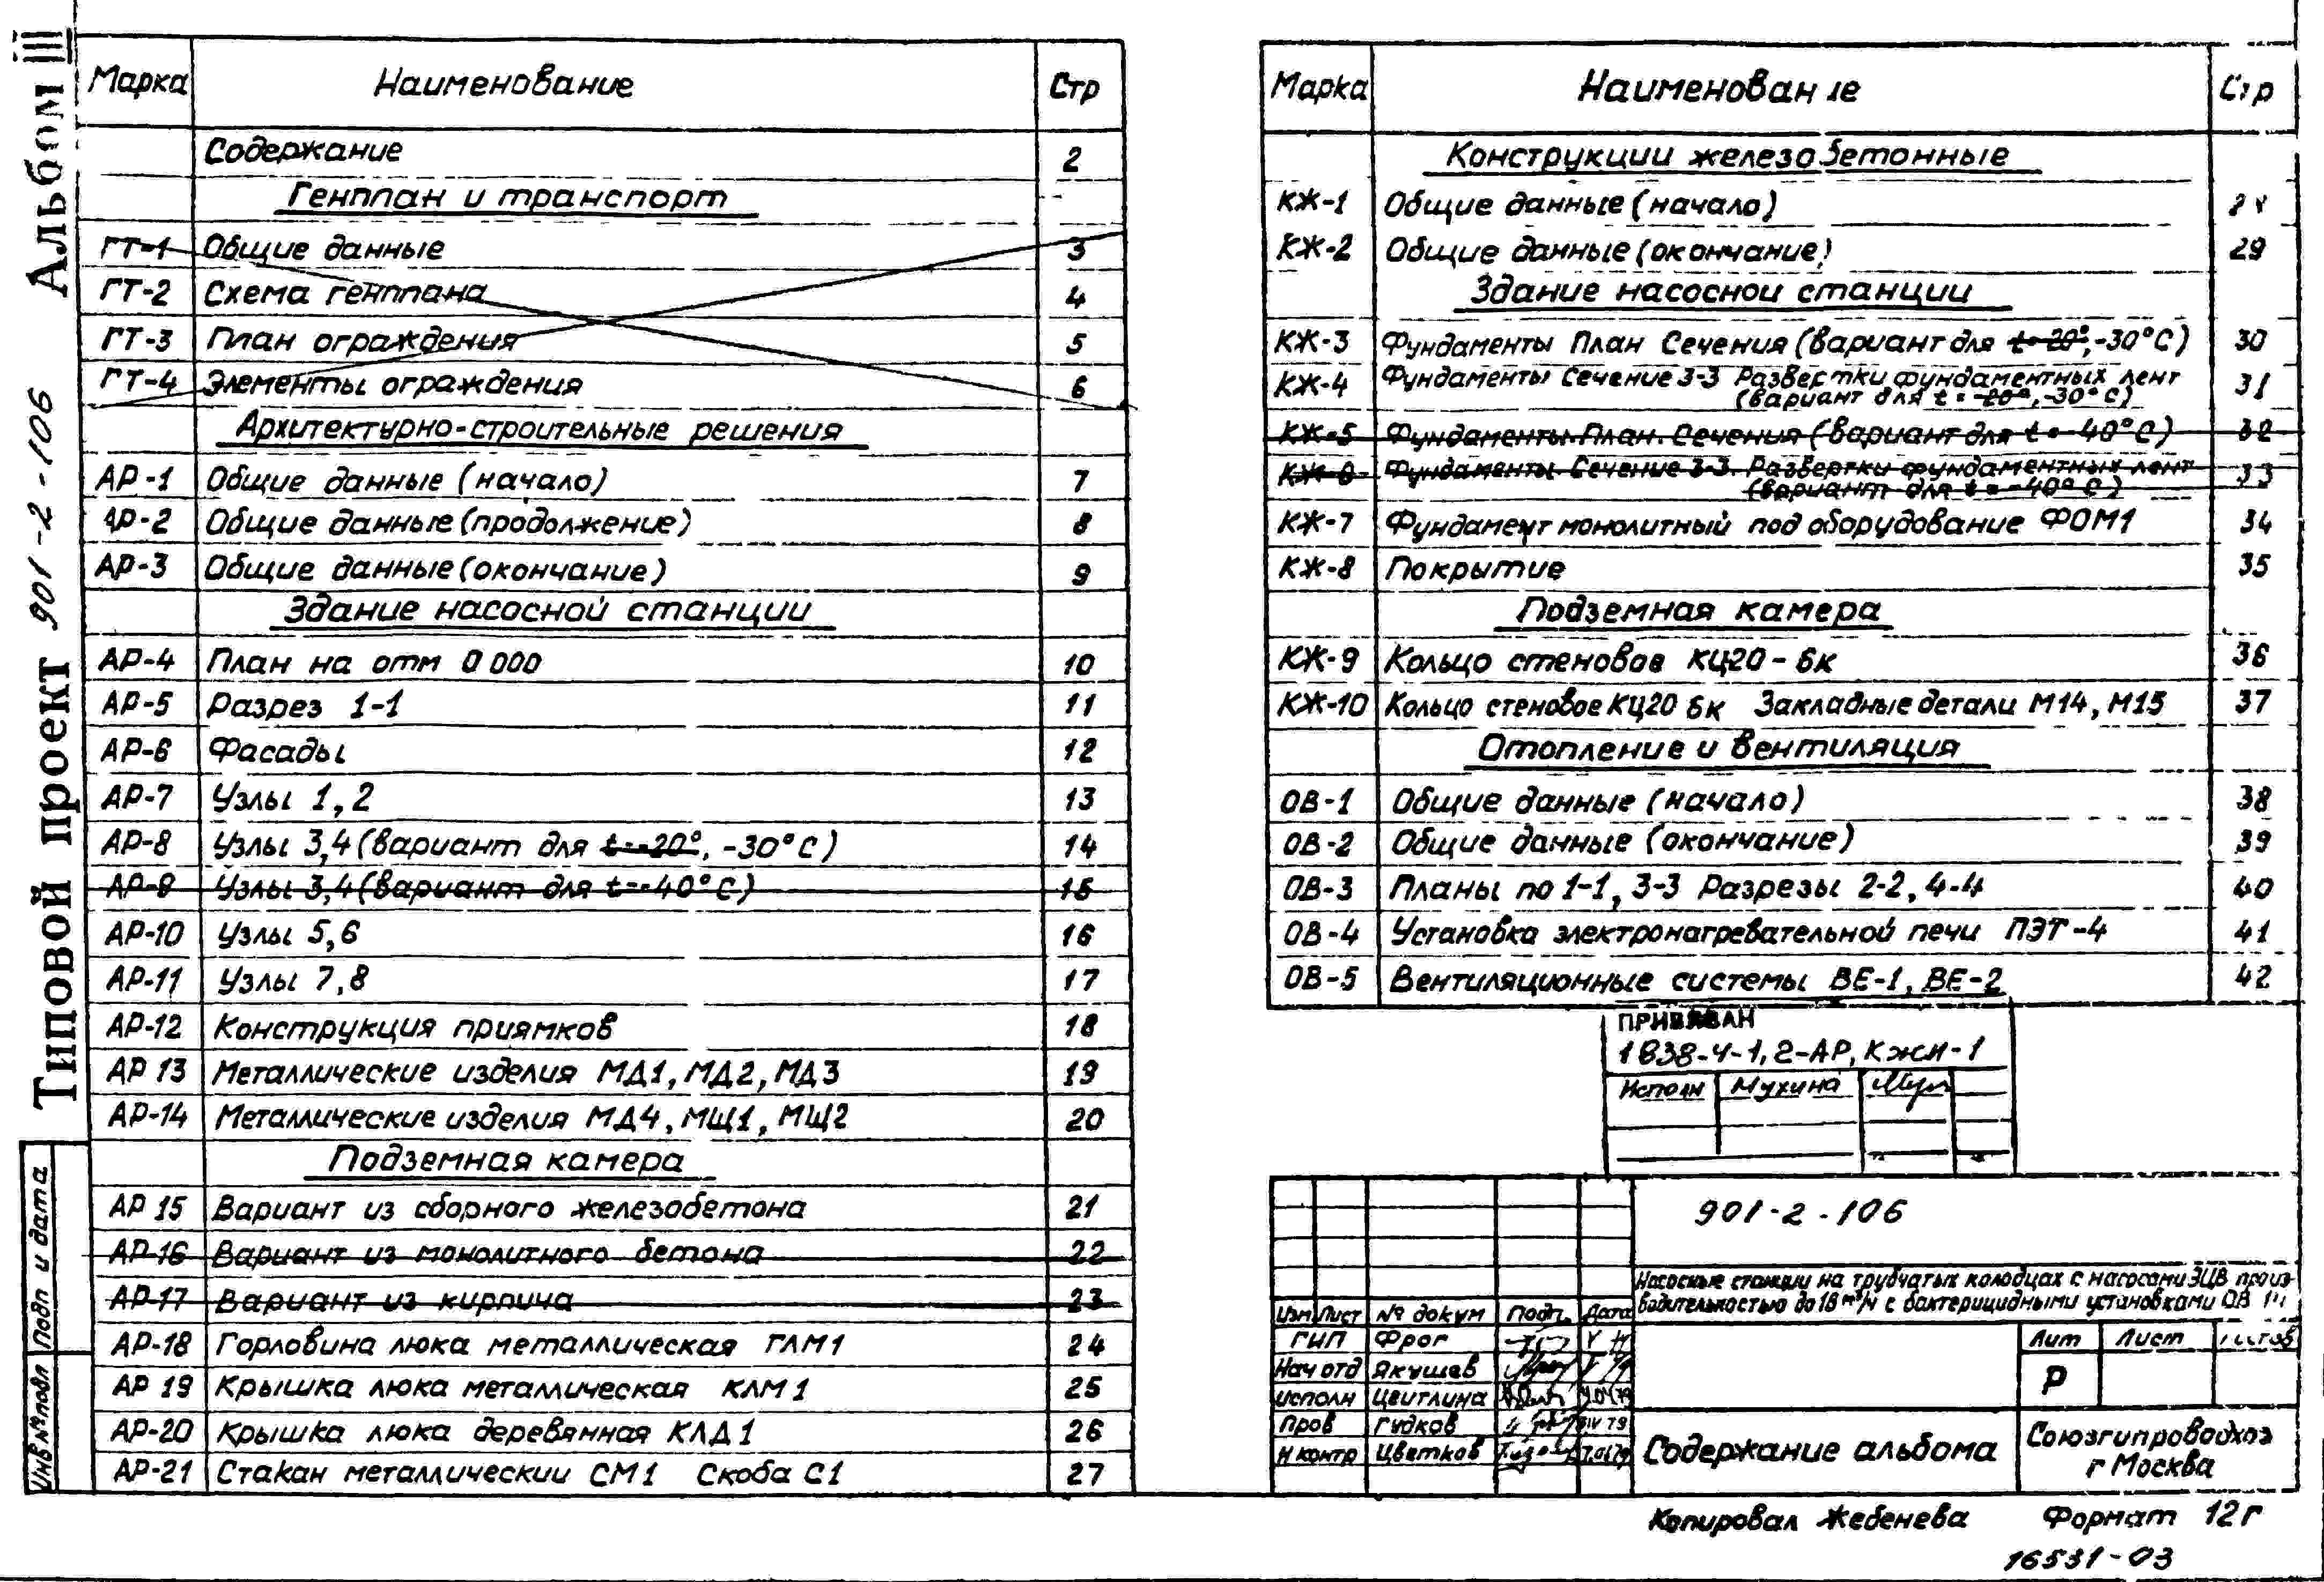 Типовой проект 901-2-106 Альбом III
Марка Наименование Стр
Содержание 2
Генплан и транспорт
ГТ-1 Общие данные 3
ГТ-2 Схема генплана 4
ГТ-3 План ограждения 5
ГТ-4 Элементы ограждения 6
Архитектурно-строительные решения
АР-1 Общие данные (начало) 7
АР-2 Общие данные (продолжение) 8
АР-3 Общие данные (окончание) 9
Здание насосной станции
АР-4 План на отм 0 000 10
АР-5 Разрез 1-1 11
АР-6 Фасады 12
АР-7 Узлы 1,2 13
АР-8 Узлы 3,4 (вариант для t=-20°, -30°С) 14
АР-9 Узлы 3,4 (вариант для t=-40°С) 15
АР-10 Узлы 5,6 16
АР-11 Узлы 7,8 17
АР-12 Конструкция приямков 18
АР 13 Металлические изделия МД1, МД2, МД3 19
АР-14 Металлические изделия МД4, МЩ1, МЩ2 20
Подземная камера
АР 15 Вариант из сборного железобетона 21
АР-16 Вариант из монолитного бетона 22
АР-17 Вариант из кирпича 23
АР-18 Горловина люка металлическая ГЛМ1 24
АР 19 Крышка люка металлическая КЛМ1 25
АР-20 Крышка люка деревянная КЛД1 26
АР-21 Стакан металлический СМ1 Скоба С1 27
Подп и дата
Инв № подл
Марка Наименование Стр
Конструкции железобетонные
КЖ-1 Общие данные (начало)
КЖ-2 Общие данные (окончание) 29
Здание насосной станции
КЖ-3 Фундаменты План Сечения (вариант для t-20°, -30°С) 30
КЖ-4 Фундаменты Сечение 3-3 Развертки фундаментных лент 31
(вариант для t=-20°, -30°С)
КЖ-5 Фундаменты. План. Сечения (вариант для t=-40°С) 32
КЖ-6 Фундаменты. Сечение 3-3. Развертки фундаментных лент 33
(вариант для t=-40°С)
КЖ-7 Фундамент монолитный под оборудование ФОМ1 34
КЖ-8 Покрытие 35
Подземная камера
КЖ-9 Кольцо стеновое КЦ20-6к 36
КЖ-10 Кольцо стеновое КЦ20 6к Закладные детали М14, М15 37
Отопление и вентиляция
ОВ-1 Общие данные (начало) 38
ОВ-2 Общие данные (окончание) 39
ОВ-3 Планы по 1-1, 3-3 Разрезы 2-2, 4-4 40
ОВ-4 Установка электронагревательной печи ПЭТ-4 41
ОВ-5 Вентиляционные системы ВЕ-1, ВЕ-2 42
ПРИВЯЗАН
1838-4-1,2-АР, Кжи-1
Исполн Мухина
901-2-106
Насосные станции на трубчатых колодцах с насосами ЭЦВ произ-
водительностью до 16 м³/ч с бактерицидными установками ОВ 1П
Изм Лист № докум Подп. Дата
ГИП Фрог
Нач отд Якушев
исполн Цейтлина
Пров Гудков IV 79
Н контр Цветков
Лит Лист Листов
Р
Содержание альбома
Союзгипроводхоз
г Москва
Копировал Жебенева Формат 12г
16531-03